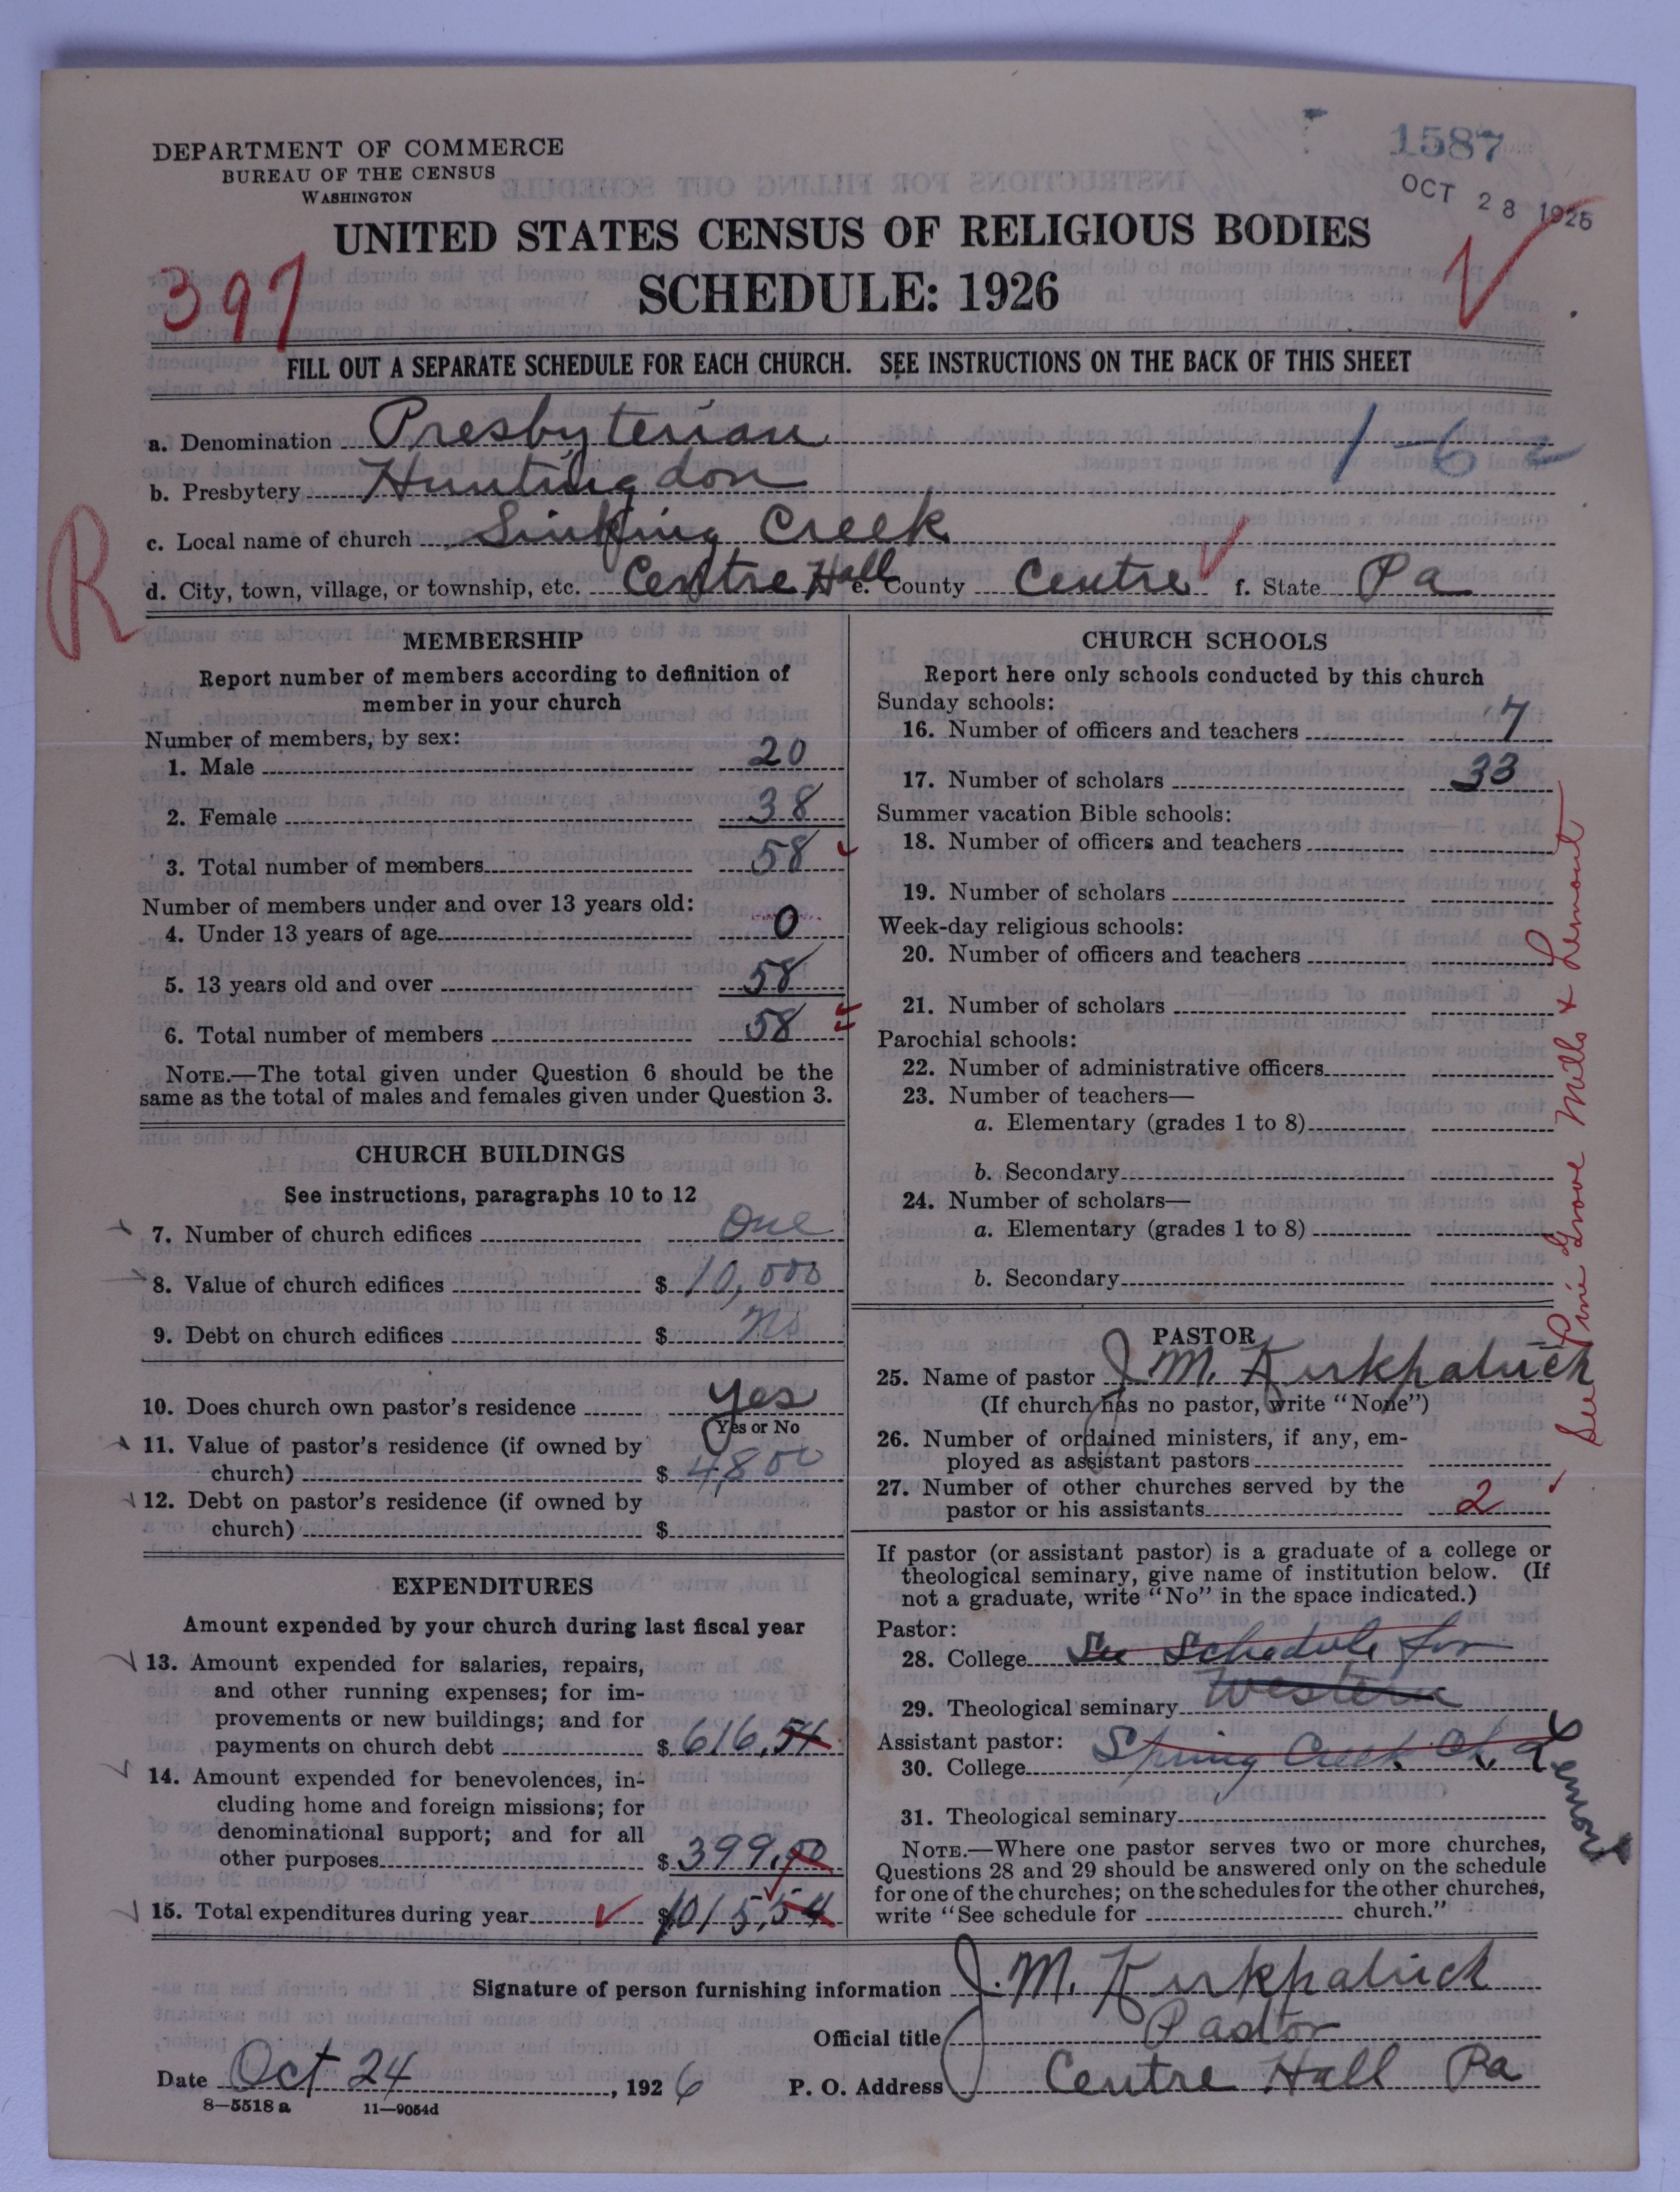 1587
OCT 28 1926
DEPARTMENT OF COMMERCE
BUREAU OF THE CENSUS
WASHINGTON
UNITED STATES CENSUS OF RELIGIOUS BODIES
SCHEDULE: 1926
397
FILL OUT A SEPARATE SCHEDULE FOR EACH CHURCH. SEE INSTRUCTIONS ON THE BACK OF THIS SHEET
a. Denomination Presbyterian
1-6
b. Presbytery Huntingdon
c. Local name of church Sinking Creek
R
d. City, town, village, or township, etc. Centre Hall e. County Centre f. State Pa
MEMBERSHIP
Report number of members according to definition of
member in your church
Number of members, by sex:
1. Male 20
2. Female 38
3. Total number of members 58
Number of members under and over 13 years old:
4. Under 13 years of age 0
5. 13 years old and over 58
6. Total number of members 58
NOTE.—The total given under Question 6 should be the
same as the total of males and females given under Question 3.
CHURCH BUILDINGS
See instructions, paragraphs 10 to 12
7. Number of church edifices One
8. Value of church edifices $ 10,000
9. Debt on church edifices $ No
10. Does church own pastor's residence Yes
Yes or No
11. Value of pastor's residence (if owned by
church) $ 4,800
12. Debt on pastor's residence (if owned by
church) $
EXPENDITURES
Amount expended by your church during last fiscal year
13. Amount expended for salaries, repairs,
and other running expenses; for im-
provements or new buildings; and for
payments on church debt $ 616.54
14. Amount expended for benevolences, in-
cluding home and foreign missions; for
denominational support; and for all
other purposes $ 399.00
15. Total expenditures during year $ 1015.54
CHURCH SCHOOLS
Report here only schools conducted by this church
Sunday schools:
16. Number of officers and teachers 7
17. Number of scholars 33
Summer vacation Bible schools:
18. Number of officers and teachers
19. Number of scholars
Week-day religious schools:
20. Number of officers and teachers
21. Number of scholars
Parochial schools:
22. Number of administrative officers
23. Number of teachers—
a. Elementary (grades 1 to 8)
b. Secondary
24. Number of scholars—
a. Elementary (grades 1 to 8)
b. Secondary
See Pine Grove Mills & Lemont
PASTOR
25. Name of pastor J. M. Kirkpatrick
(If church has no pastor, write "None")
26. Number of ordained ministers, if any, em-
ployed as assistant pastors
27. Number of other churches served by the
pastor or his assistants 2
If pastor (or assistant pastor) is a graduate of a college or
theological seminary, give name of institution below. (If
not a graduate, write "No" in the space indicated.)
Pastor:
28. College See Schedule for
29. Theological seminary Western
Assistant pastor:
30. College Spring Creek Ch. at Lemont
31. Theological seminary
NOTE.—Where one pastor serves two or more churches,
Questions 28 and 29 should be answered only on the schedule
for one of the churches; on the schedules for the other churches,
write "See schedule for church."
Signature of person furnishing information J. M. Kirkpatrick
Official title Pastor
Date Oct 24, 1926 P. O. Address Centre Hall Pa
8—5518 a 11—9054d